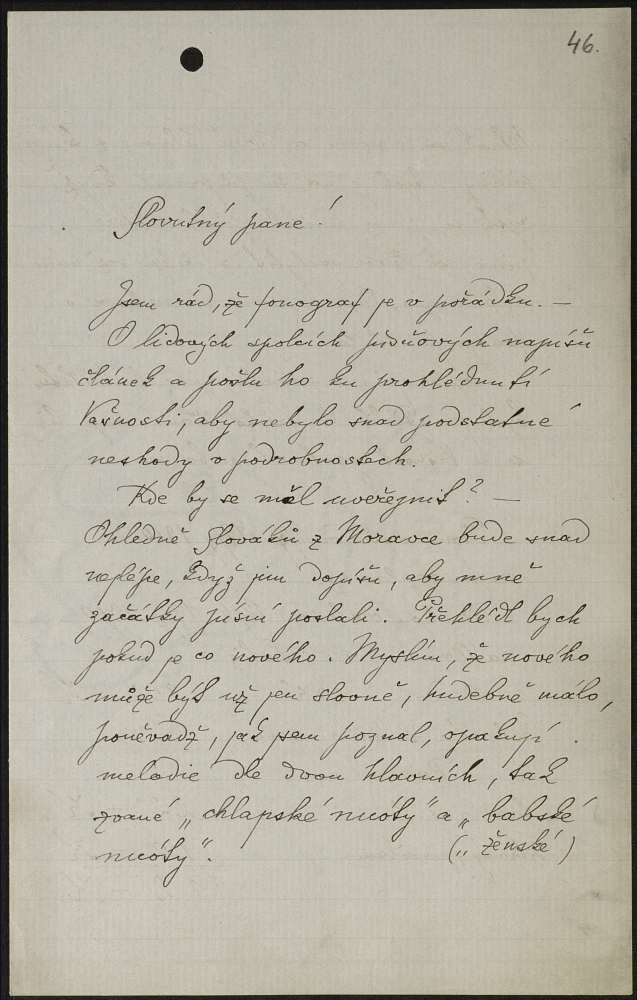 46.
Slovutný pane!
Jsem rád, že fonograf je v pořádku. —
O lidových spolcích písňových napíšu
článek a pošlu ho ku prohlédnutí
Vašnosti, aby nebylo snad podstatné
neshody v podrobnostech.
Kde by se měl uveřejnit? —
Ohledně Slováků z Moravce bude snad
nejlépe, když jim dopíšu, aby mně
začátky písní poslali. Přehlédl bych
pokud je co nového. Myslím, že nového
může být už jen slovně, hudebně málo,
poněvadž, jak jsem poznal, opakují
melodie dle dvou hlavních, tak
zvané „chlapské nuoty" a „babské
nuoty". („ženské)